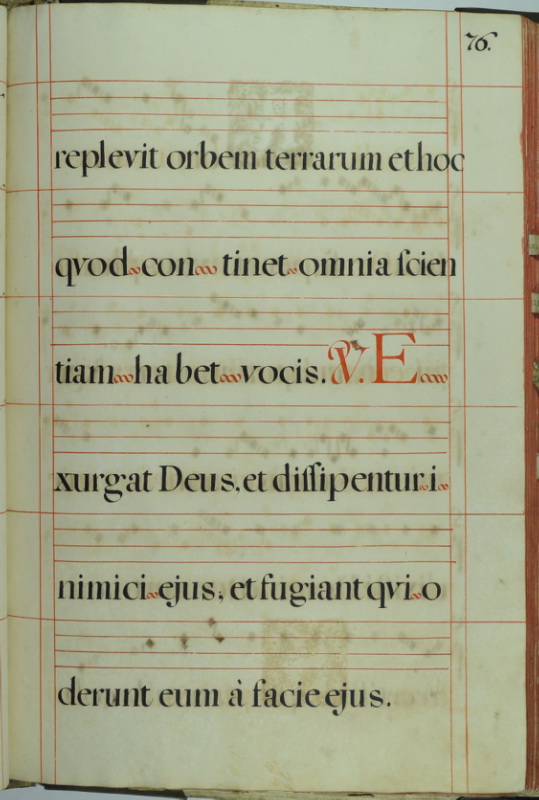 76.
replevit orbem terrarum et hoc
qvod con tinet omnia ſcien
tiam ha bet vocis. V. E
xurgat Deus, et diſſipentur i
nimici ejus, et fugiant qvi o
derunt eum à facie ejus.